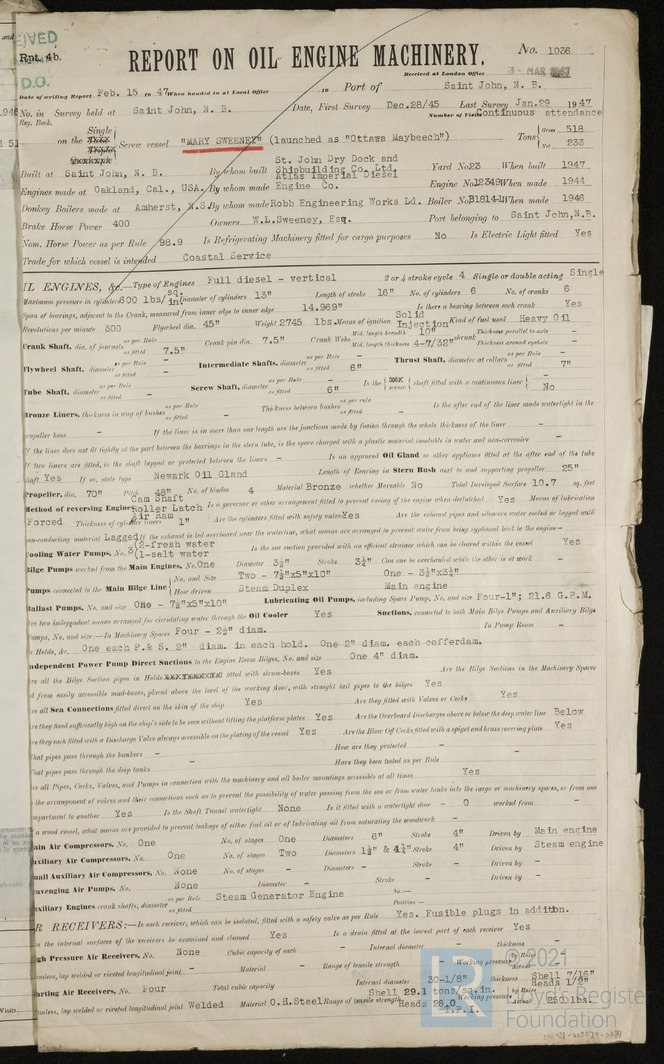 RECEIVED
Rpt. 4b.
D.O.
REPORT ON OIL ENGINE MACHINERY.
No. 1036
Received at London Office 3 - MAR 1947
Date of writing Report Feb. 15 19 47 When handed in at Local Office 19 Port of Saint John, N. B.
No. in Survey held at Saint John, N. B. Date, First Survey Dec.28/45 Last Survey Jan.29 1947
Reg. Book. Number of Visits Continuous attendance
on the Single Screw vessel "MARY SWEENEY" (launched as "Ottawa Maybeech") Tons Gross 518 Net 233
Built at Saint John, N. B. By whom built St. John Dry Dock and Shipbuilding Co. Ltd. Yard No 23 When built 1947
Engines made at Oakland, Cal., USA. By whom made Atlas Imperial Diesel Engine Co. Engine No 12349 When made 1944
Donkey Boilers made at Amherst, N.S. By whom made Robb Engineering Works Ld. Boiler No When made 1946
Brake Horse Power 400 Owners W.L.Sweeney, Esq. Port belonging to Saint John, N.B.
Nom. Horse Power as per Rule 98.9 Is Refrigerating Machinery fitted for cargo purposes No Is Electric Light fitted Yes
Trade for which vessel is intended Coastal Service
IL ENGINES, &c. Type of Engines Full diesel - vertical 2 or 4 stroke cycle 4 Single or double acting Single
Maximum pressure in cylinders 600 lbs/sq. in. Diameter of cylinders 13" Length of stroke 16" No. of cylinders 6 No. of cranks 6
Span of bearings, adjacent to the Crank, measured from inner edge to inner edge 14.969" Is there a bearing between each crank Yes
Revolutions per minute 300 Flywheel dia. 45" Weight 2745 lbs. Means of ignition Solid Injection Kind of fuel used Heavy Oil
Crank Shaft, dia. of journals as per Rule - as fitted 7.5" Crank pin dia. 7.5" Crank Webs Mid. length breadth 10" Mid. length thickness 4-7/32" shrunk Thickness parallel to axis - Thickness around eyehole -
Flywheel Shaft, diameter as per Rule - as fitted - Intermediate Shafts, diameter as per Rule - as fitted 6" Thrust Shaft, diameter at collars as per Rule - as fitted 7"
Tube Shaft, diameter as per Rule - as fitted - Screw Shaft, diameter as per Rule - as fitted 6" Is the screw shaft fitted with a continuous liner No
Bronze Liners, thickness in way of bushes as per Rule as fitted - Thickness between bushes as per rule as fitted - Is the after end of the liner made watertight in the
propeller boss - If the liner is in more than one length are the junctions made by fusion through the whole thickness of the liner -
If the liner does not fit tightly at the part between the bearings in the stern tube, is the space charged with a plastic material insoluble in water and non-corrosive -
If two liners are fitted, is the shaft lapped or protected between the liners - Is an approved Oil Gland or other appliance fitted at the after end of the tube
shaft Yes If so, state type Newark Oil Gland Length of Bearing in Stern Bush next to and supporting propeller 25"
Propeller, dia. 70" Pitch 48" No. of blades 4 Material Bronze whether Moveable No Total Developed Surface 10.7 sq. feet
Method of reversing Engines Cam Shaft Roller Latch Air Ram Is a governor or other arrangement fitted to prevent racing of the engine when declutched Yes Means of lubrication
Forced Thickness of cylinder liners 1" Are the cylinders fitted with safety valves Yes Are the exhaust pipes and silencers water cooled or lagged with
non-conducting material Lagged If the exhaust is led overboard near the waterline, what means are arranged to prevent water from being syphoned back to the engine -
Cooling Water Pumps, No. 3 (2-fresh water (1-salt water Is the sea suction provided with an efficient strainer which can be cleared within the vessel Yes
Bilge Pumps worked from the Main Engines, No. One Diameter 3½" Stroke 3¾" Can one be overhauled while the other is at work -
Pumps connected to the Main Bilge Line No. and Size Two - 7½"x5"x10" One - 3½"x3¾"
How driven Steam Duplex Main engine
Ballast Pumps, No. and size One - 7½"x5"x10" Lubricating Oil Pumps, including Spare Pump, No. and size Four-1"; 21.6 G.P.M.
Are two independent means arranged for circulating water through the Oil Cooler Yes Suctions, connected to both Main Bilge Pumps and Auxiliary Bilge
Pumps, No. and size:-In Machinery Spaces Four - 2½" diam. In Pump Room -
In Holds, &c. One each P.& S. 2" diam. in each hold. One 2" diam. each cofferdam.
Independent Power Pump Direct Suctions to the Engine Room Bilges, No. and size One 4" diam.
Are all the Bilge Suction pipes in Holds fitted with strum-boxes Yes Are the Bilge Suctions in the Machinery Spaces
led from easily accessible mud-boxes, placed above the level of the working floor, with straight tail pipes to the bilges Yes
Are all Sea Connections fitted direct on the skin of the ship Yes Are they fitted with Valves or Cocks Yes
Are they fixed sufficiently high on the ship's side to be seen without lifting the platform plates Yes Are the Overboard Discharges above or below the deep water line Below
Are they each fitted with a Discharge Valve always accessible on the plating of the vessel Yes Are the Blow Off Cocks fitted with a spigot and brass covering plate Yes
What pipes pass through the bunkers - How are they protected -
What pipes pass through the deep tanks - Have they been tested as per Rule -
Are all Pipes, Cocks, Valves, and Pumps in connection with the machinery and all boiler mountings accessible at all times Yes
Is the arrangement of valves and their connections such as to prevent the possibility of water passing from the sea or from water tanks into the cargo or machinery spaces, or from one
compartment to another Yes Is the Shaft Tunnel watertight None Is it fitted with a watertight door - 0 worked from -
In a wood vessel, what means are provided to prevent leakage of either fuel oil or of lubricating oil from saturating the woodwork -
Main Air Compressors, No. One No. of stages One Diameters 6" Stroke 4" Driven by Main engine
Auxiliary Air Compressors, No. One No. of stages Two Diameters 1½" & 4¼" Stroke 4" Driven by Steam engine
Small Auxiliary Air Compressors, No. None No. of stages - Diameters - Stroke - Driven by -
Scavenging Air Pumps, No. None Diameter - Stroke - Driven by -
Auxiliary Engines crank shafts, diameter as per Rule as fitted Steam Generator Engine No.:- Position -
R RECEIVERS:-Is each receiver, which can be isolated, fitted with a safety valve as per Rule Yes. Fusible plugs in additon.
Can the internal surfaces of the receivers be examined and cleaned Yes Is a drain fitted at the lowest part of each receiver Yes
High Pressure Air Receivers, No. None Cubic capacity of each - Internal diameter - thickness -
Seamless, lap welded or riveted longitudinal joint - Material - Range of tensile strength - Working pressure by Rules Actual -
Starting Air Receivers, No. Four Total cubic capacity - Internal diameter 30-1/8" thickness Shell 7/16" Heads 1/2"
Seamless, lap welded or riveted longitudinal joint Welded Material O.H.Steel Range of tensile strength Shell 29.1 tons/sq.in. Heads 28.0 T.P.I. Working pressure by Rules Actual 250 lbs.
© 2021
Lloyd's Register
Foundation